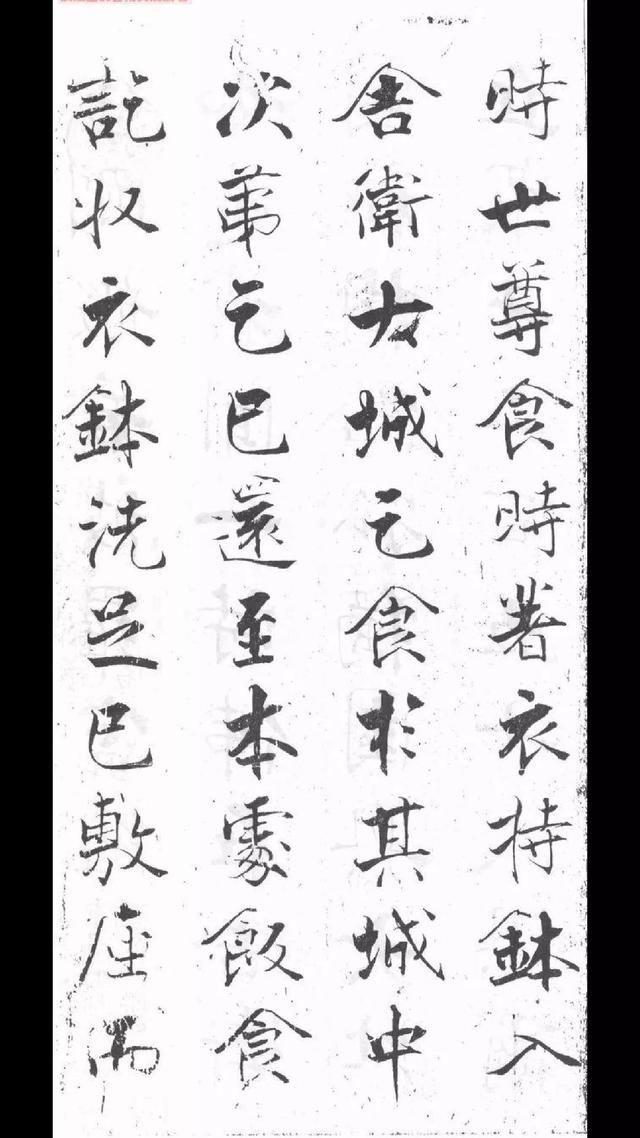 時世尊食時著衣持鉢入
舍衛大城乞食於其城中
次第乞已還至本處飯食
訖收衣鉢洗足已敷座而